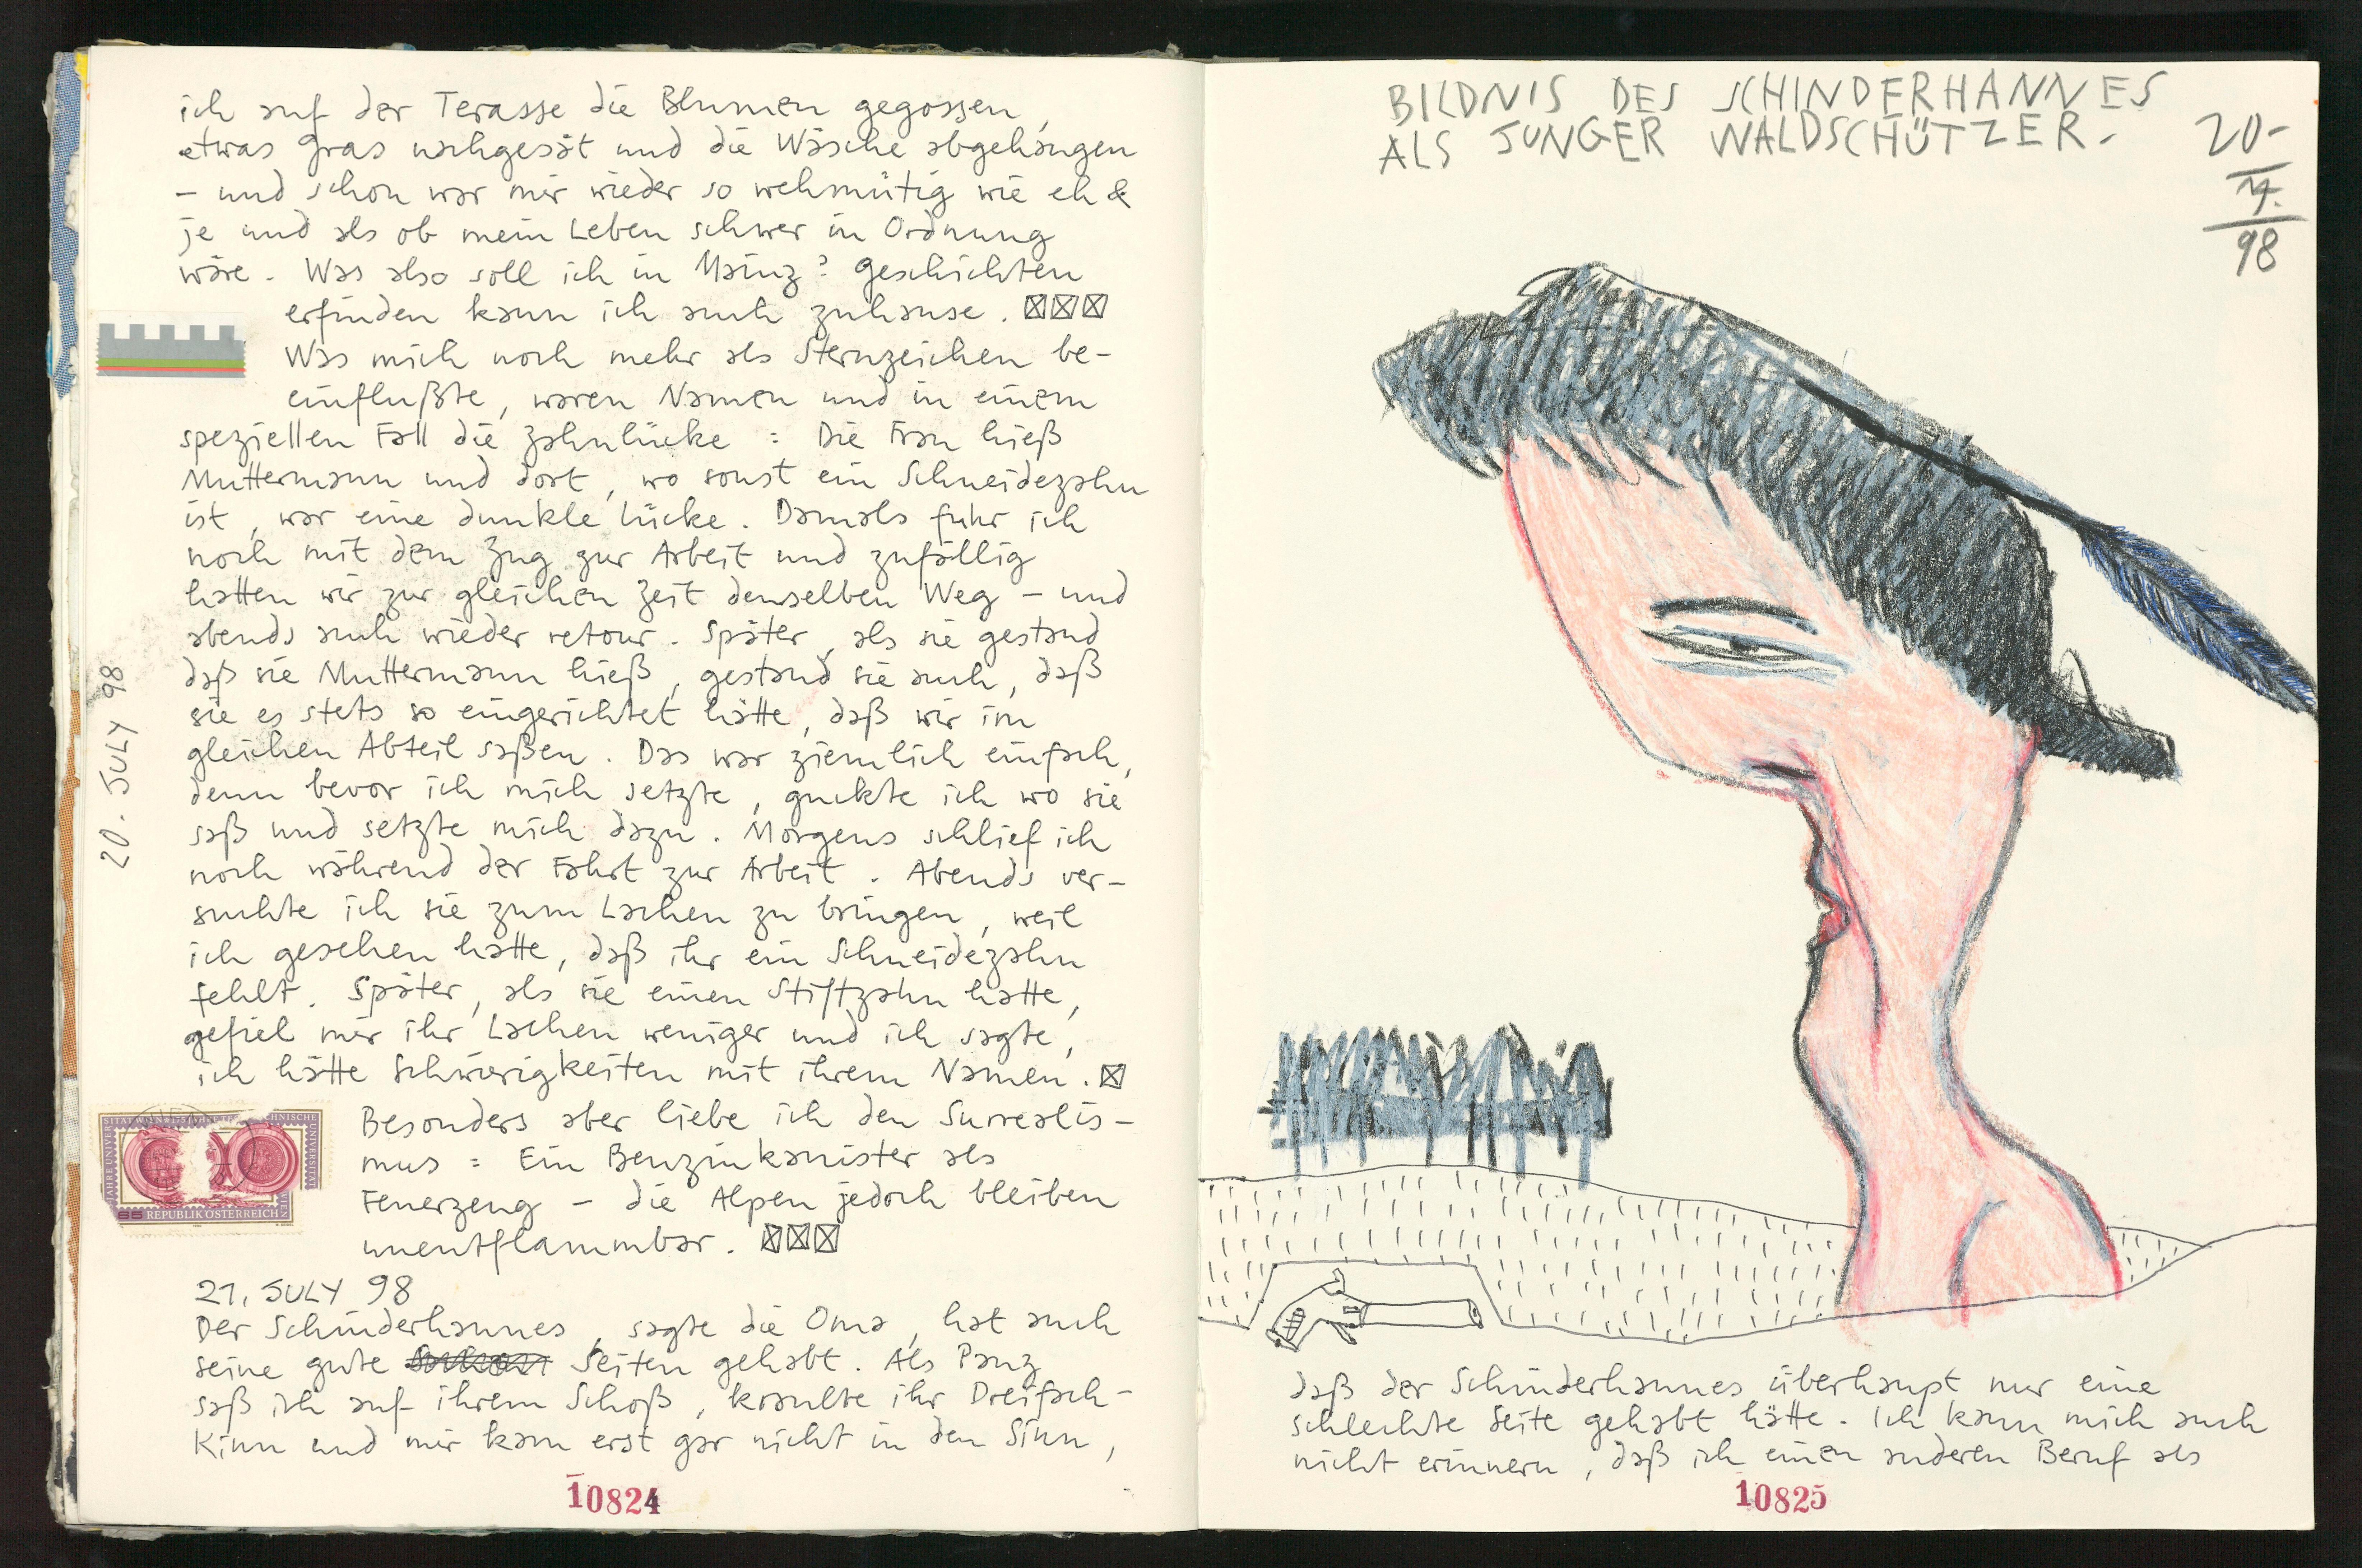 ich auf der Terasse die Blumen gegossen,
etwas Gras nachgesät und die Wäsche abgehangen
– und schon war mir wieder so wehmütig wie eh &
je und als ob mein Leben schwer in Ordnung
wäre. Was also soll ich in Mainz? Geschichten
erfinden kann ich auch zuhause. ☒☒☒
Was mich noch mehr als Sternzeichen be-
einflußte, waren Namen und in einem
speziellen Fall die Zahnlücke : Die Frau hieß
Muttermann und dort, wo sonst ein Schneidezahn
ist, war eine dunkle Lücke. Damals fuhr ich
noch mit dem Zug zur Arbeit und zufällig
hatten wir zur gleichen Zeit denselben Weg – und
abends auch wieder retour. Später, als sie gestand
daß sie Muttermann hieß, gestand sie auch, daß
sie es stets so eingerichtet hätte, daß wir im
gleichen Abteil saßen. Das war ziemlich einfach,
denn bevor ich mich setzte, guckte ich wo sie
saß und setzte mich dazu. Morgens schlief ich
noch während der Fahrt zur Arbeit. Abends ver-
suchte ich sie zum Lachen zu bringen, weil
ich gesehen hatte, daß ihr ein Schneidezahn
fehlt. Später, als sie einen Stiftzahn hatte,
gefiel mir ihr Lachen weniger und ich sagte,
ich hätte Schwierigkeiten mit ihrem Namen. ☒
Besonders aber liebe ich den Surrealis-
mus : Ein Benzinkanister als
Feuerzeug – die Alpen jedoch bleiben
unentflammbar. ☒☒☒
20. JULY 98
UNIVERSITÄT WIEN
REPUBLIK ÖSTERREICH
21. JULY 98
Der Schinderhannes, sagte die Oma, hat auch
seine gute Seiten gehabt. Als Panz
saß ich auf ihrem Schoß, kraulte ihr Dreifach-
Kinn und mir kam erst gar nicht in den Sinn,
10824
BILDNIS DES SCHINDERHANNES
ALS JUNGER WALDSCHÜTZER.-
20-
98
daß der Schinderhannes überhaupt nur eine
schlechte Seite gehabt hätte. Ich kann mich auch
nicht erinnern, daß ich einen anderen Beruf als
10825